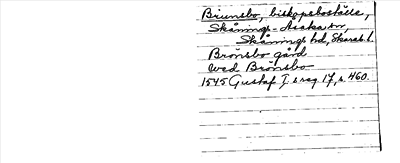 Brunsbo, biskopsboställe,
Skånings-Åsaka sn,
Skånings hd, Skarab. l.
Brönsbo gård
wed Brönsbo
1545 Gustaf I:s reg 17, s. 460.